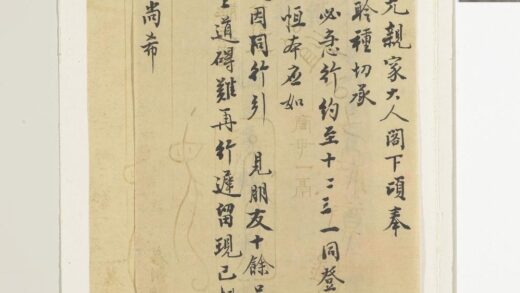 兄親家大人閣下頃奉
聆種切承
必急行約至十二三一同登
恒本应如
因同行引 見朋友十餘
道碍難再行遲留現已
尚希